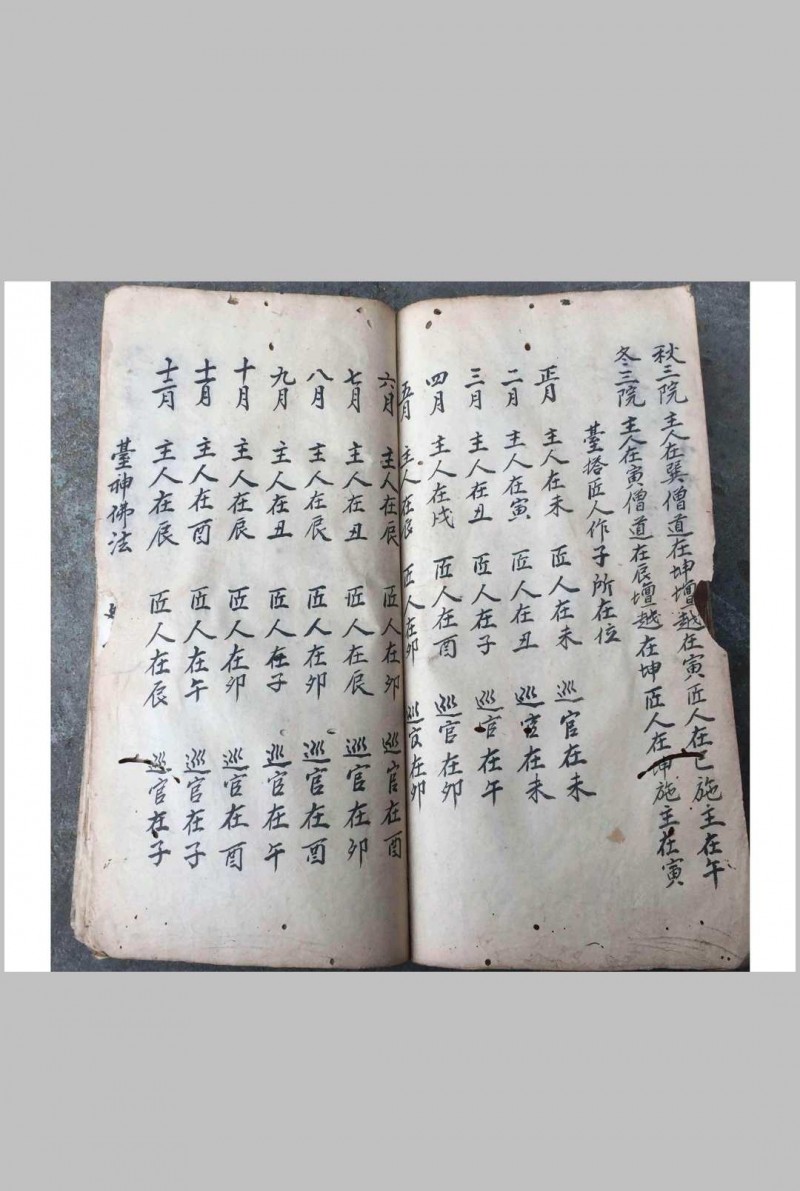 秋三院 主人在巽僧道在坤壇越在寅匠人在巳施主在午
冬三院 主人在寅僧道在辰壇越在坤匠人在坤施主在寅
臺塔匠人作子所在位
正月 主人在未 匠人在未 巡官在未
二月 主人在寅 匠人在丑 巡官在未
三月 主人在丑 匠人在子 巡官在午
四月 主人在戌 匠人在酉 巡官在卯
五月 主人在辰 匠人在卯 巡官在卯
六月 主人在辰 匠人在卯 巡官在酉
七月 主人在丑 匠人在辰 巡官在卯
八月 主人在辰 匠人在卯 巡官在酉
九月 主人在丑 匠人在子 巡官在午
十月 主人在辰 匠人在卯 巡官在酉
十一月 主人在酉 匠人在午 巡官在子
十二月 主人在辰 匠人在辰 巡官在子
臺神佛法